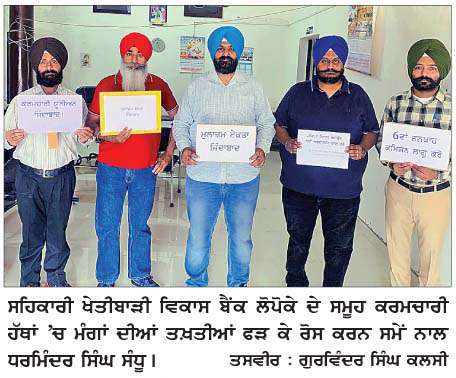 ਕਰਮਚਾਰੀ ਯੂਨੀਅਨ
ਜ਼ਿੰਦਾਬਾਦ
ਮੁਲਾਜ਼ਮ ਏਕਤਾ
ਜ਼ਿੰਦਾਬਾਦ
6ਵਾਂ ਤਨਖਾਹ
ਕਮਿਸ਼ਨ ਲਾਗੂ ਕਰੋ
ਸਹਿਕਾਰੀ ਖੇਤੀਬਾੜੀ ਵਿਕਾਸ ਬੈਂਕ ਲੋਪੋਕੇ ਦੇ ਸਮੂਹ ਕਰਮਚਾਰੀ
ਹੱਥਾਂ 'ਚ ਮੰਗਾਂ ਦੀਆਂ ਤਖ਼ਤੀਆਂ ਫੜ ਕੇ ਰੋਸ ਕਰਨ ਸਮੇਂ ਨਾਲ
ਧਰਮਿੰਦਰ ਸਿੰਘ ਸੰਧੂ। ਤਸਵੀਰ : ਗੁਰਵਿੰਦਰ ਸਿੰਘ ਕਲਸੀ